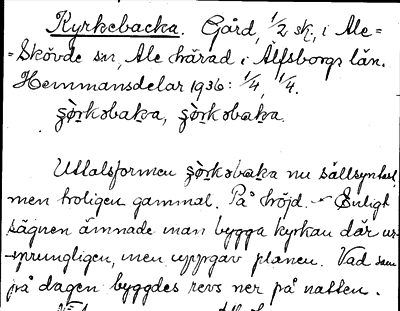 Kyrkebacka. Gård, 1/2 sk, i Ale=
=Skövde sn, Ale härad i Älfsborgs län.
Hemmansdelar 1936: 1/4, 1/4.
Uttalsformen nu sällsynt,
men troligen gammal. På höjd. – Enligt
sägnen ämnade man bygga kyrkan där ur-
-sprungligen, men uppgav planen. Vad som
på dagen byggdes revs ner på natten.